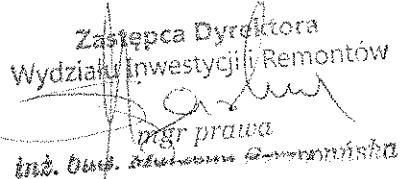 Zastępca Dyrektora
Wydziału Inwestycji i Remontów
mgr prawa
inż. bud.